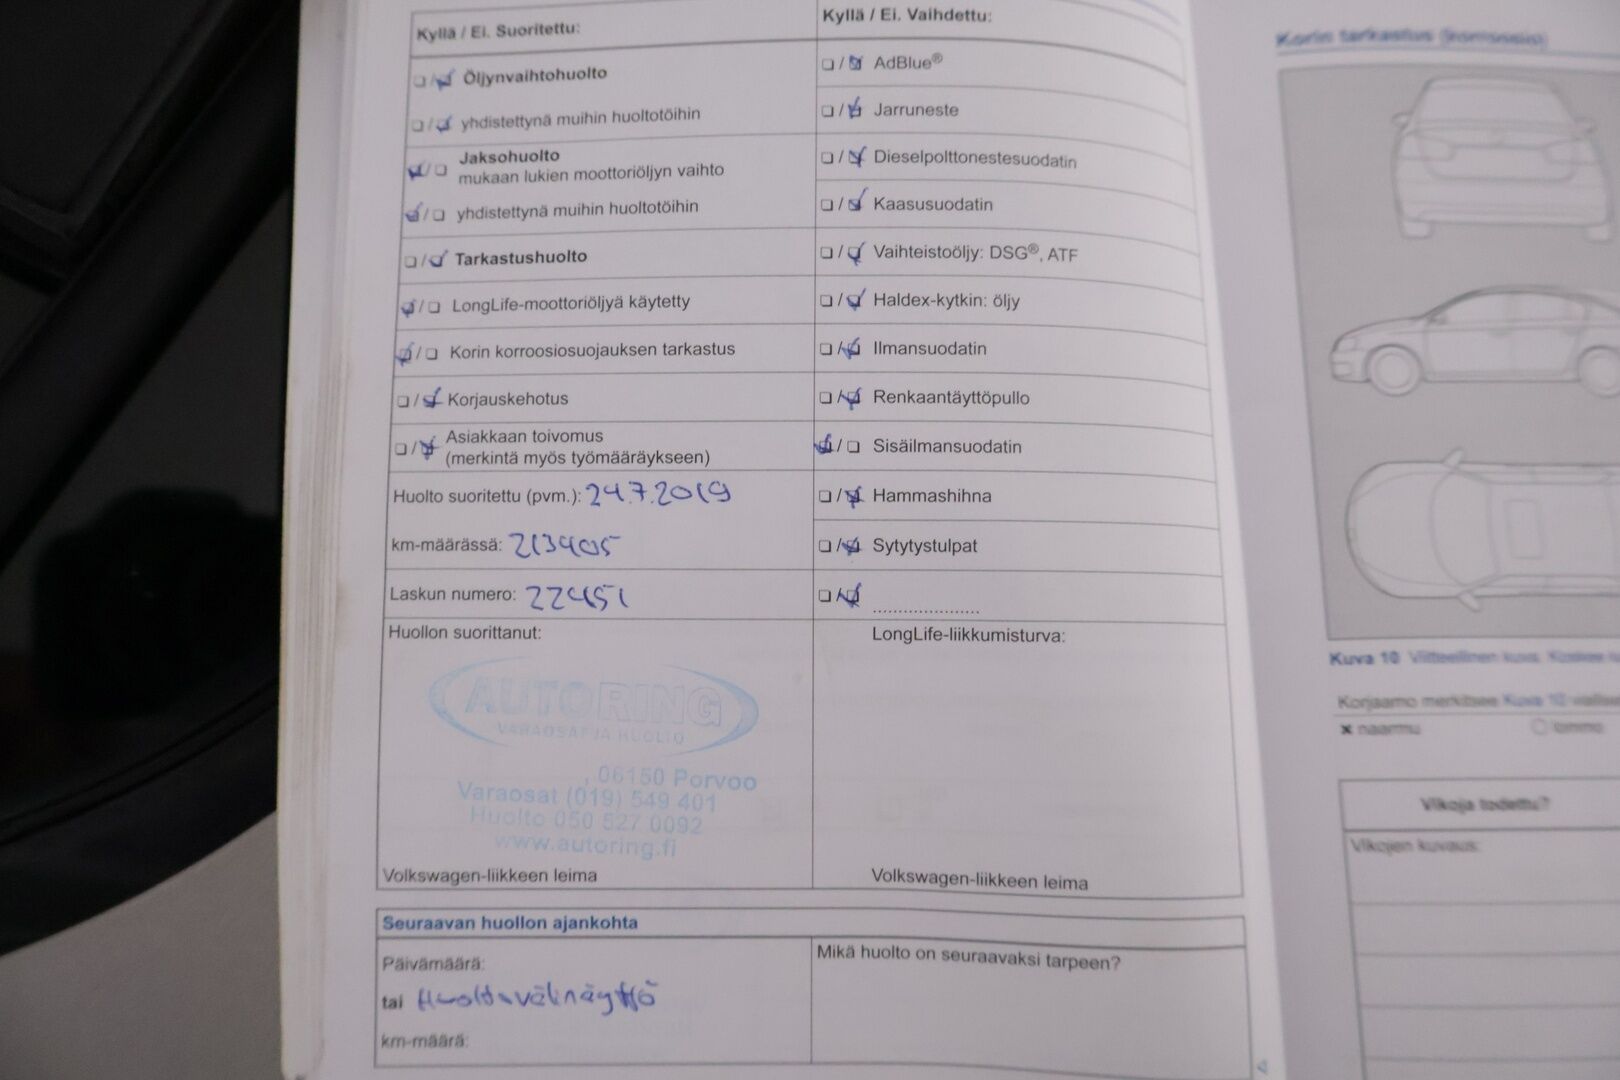 Kyllä / Ei. Suoritettu:
☐ / ☑ Öljynvaihtohuolto
☐ / ☑ yhdistettynä muihin huoltotöihin
☑ / ☐ Jaksohuolto
mukaan lukien moottoriöljyn vaihto
☑ / ☐ yhdistettynä muihin huoltotöihin
☐ / ☑ Tarkastushuolto
☑ / ☐ LongLife-moottoriöljyä käytetty
☑ / ☐ Korin korroosiosuojauksen tarkastus
☐ / ☑ Korjauskehotus
☐ / ☑ Asiakkaan toivomus
(merkintä myös työmääräykseen)
Huolto suoritettu (pvm.): 24.7.2019
km-määrässä: 213405
Laskun numero: 22451
Huollon suorittanut:
AUTORING
VARAOSAT JA HUOLTO
, 06150 Porvoo
Varaosat (019) 549 401
Huolto 050 527 0092
www.autoring.fi
Volkswagen-liikkeen leima
Kyllä / Ei. Vaihdettu:
☐ / ☑ AdBlue®
☐ / ☑ Jarruneste
☐ / ☑ Dieselpolttonestesuodatin
☐ / ☑ Kaasusuodatin
☐ / ☑ Vaihteistoöljy: DSG®, ATF
☐ / ☑ Haldex-kytkin: öljy
☐ / ☑ Ilmansuodatin
☐ / ☑ Renkaantäyttöpullo
☑ / ☐ Sisäilmansuodatin
☐ / ☑ Hammashihna
☐ / ☑ Sytytystulpat
☐ / ☑ .....................
LongLife-liikkumisturva:
Volkswagen-liikkeen leima
Seuraavan huollon ajankohta
Päivämäärä:
tai Huoltovälinäyttö
km-määrä:
Mikä huolto on seuraavaksi tarpeen?
Korin tarkastus (korroosio)
Kuva 10 Viitteellinen kuva:
Korjaamo merkitsee Kuva 10
x naarmu
○ lommo
Vikoja todettu?
Vikojen kuvaus: